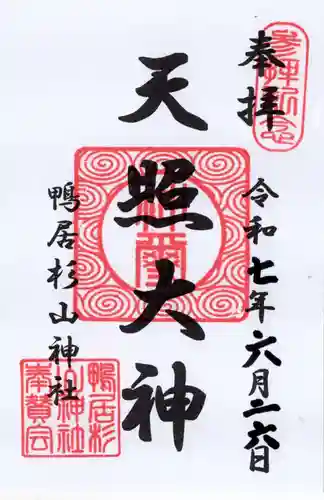 奉拝
参拝記念
令和七年六月二六日
天照大神
神璽
鴨居杉山神社
鴨居杉山神社奉賛会